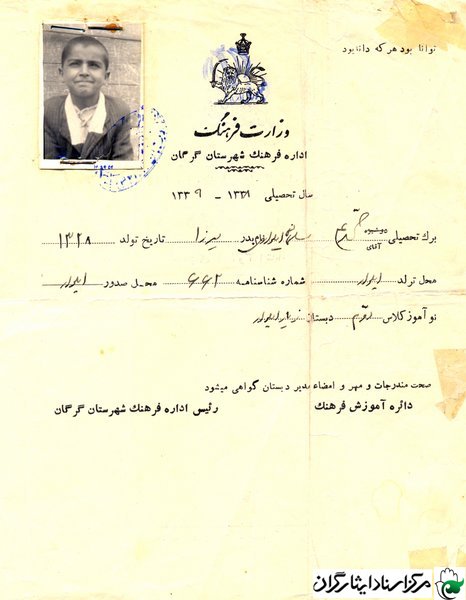 توانا بود هر که دانا بود
وزارت فرهنگ
اداره فرهنگ شهرستان گرگان
سال تحصیلی ۱۳۳۸ - ۱۳۳۹
برگ تحصیلی دوشیزه آقای پدر میرزا تاریخ تولد ۱۳۲۸
محل تولد ایلوار شماره شناسنامه ۶۶۲ محل صدور ایلوار
نوآموز کلاس دوم دبستان ایلوار
صحت مندرجات و مهر و امضاء مدیر دبستان گواهی میشود
دائره آموزش فرهنگ رئیس اداره فرهنگ شهرستان گرگان
مرکز اسناد ایثارگران